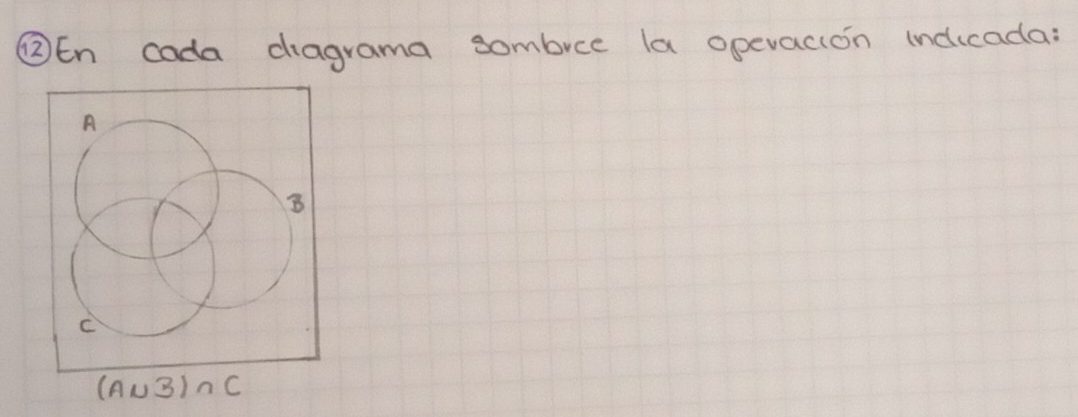 12 En cada diagrama sombree la operación indicada:
A
B
C
(A∪B)∩C